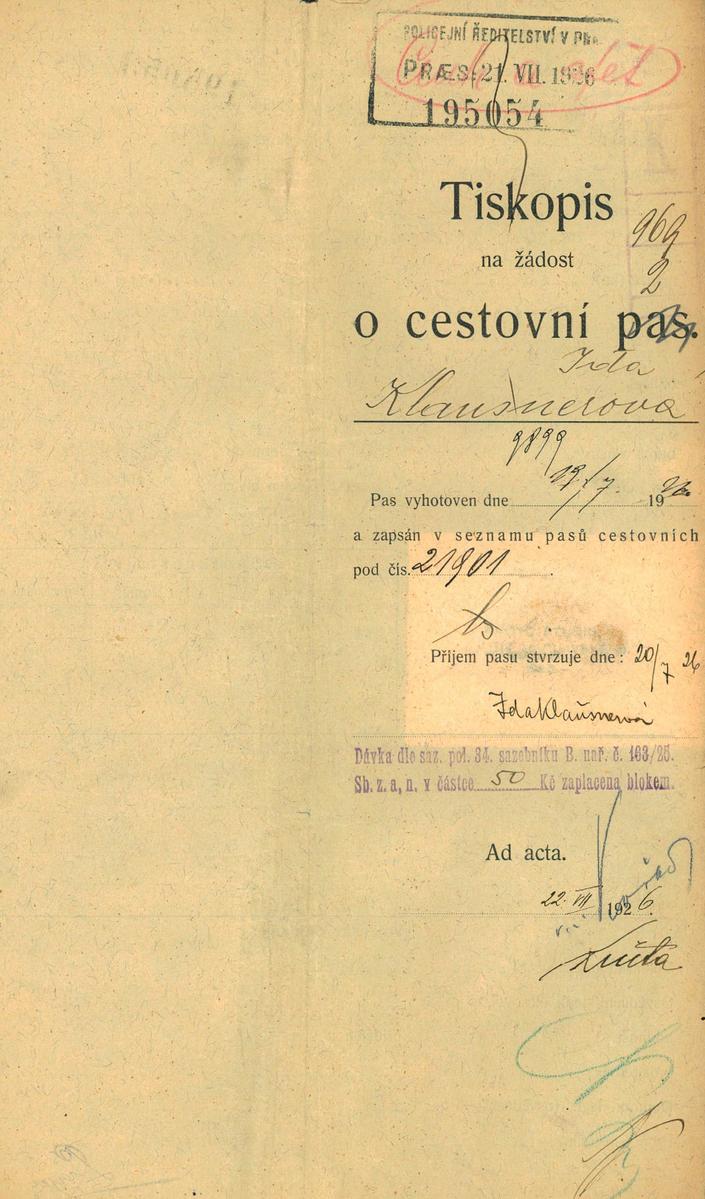 POLICEJNÍ ŘEDITELSTVÍ V PRA
PRÆS: 21. VII. 1926
195054
Tiskopis
na žádost
969
2
o cestovní pas.
Ida
Klausnerova
9899
Pas vyhotoven dne 19/7. 1926
a zapsán v seznamu pasů cestovních
pod čís. 21901
Příjem pasu stvrzuje dne: 20/7 26
Ida Klausnerová
Dávka dle saz. pol. 34. sazebníku B. nař. č. 163/25.
Sb. z. a, n. v částce 50 Kč zaplacena blokem.
Ad acta.
22. VII 1926.